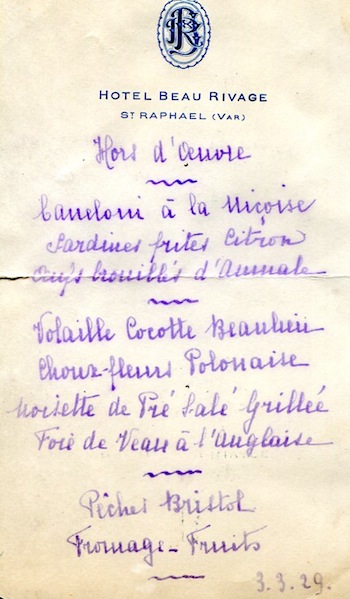 HOTEL BEAU RIVAGE
ST RAPHAEL (VAR)
Hors d'Œuvre
Caneloni à la Niçoise
Sardines frites Citron
Œufs brouillés d'Aumale
Volaille Cocotte Beaulieu
Choux-fleurs Polonaise
Noisette de Pré Salé Grillée
Foie de Veau à l'Anglaise
Pêches Bristol
Fromage-Fruits
3.3.29.